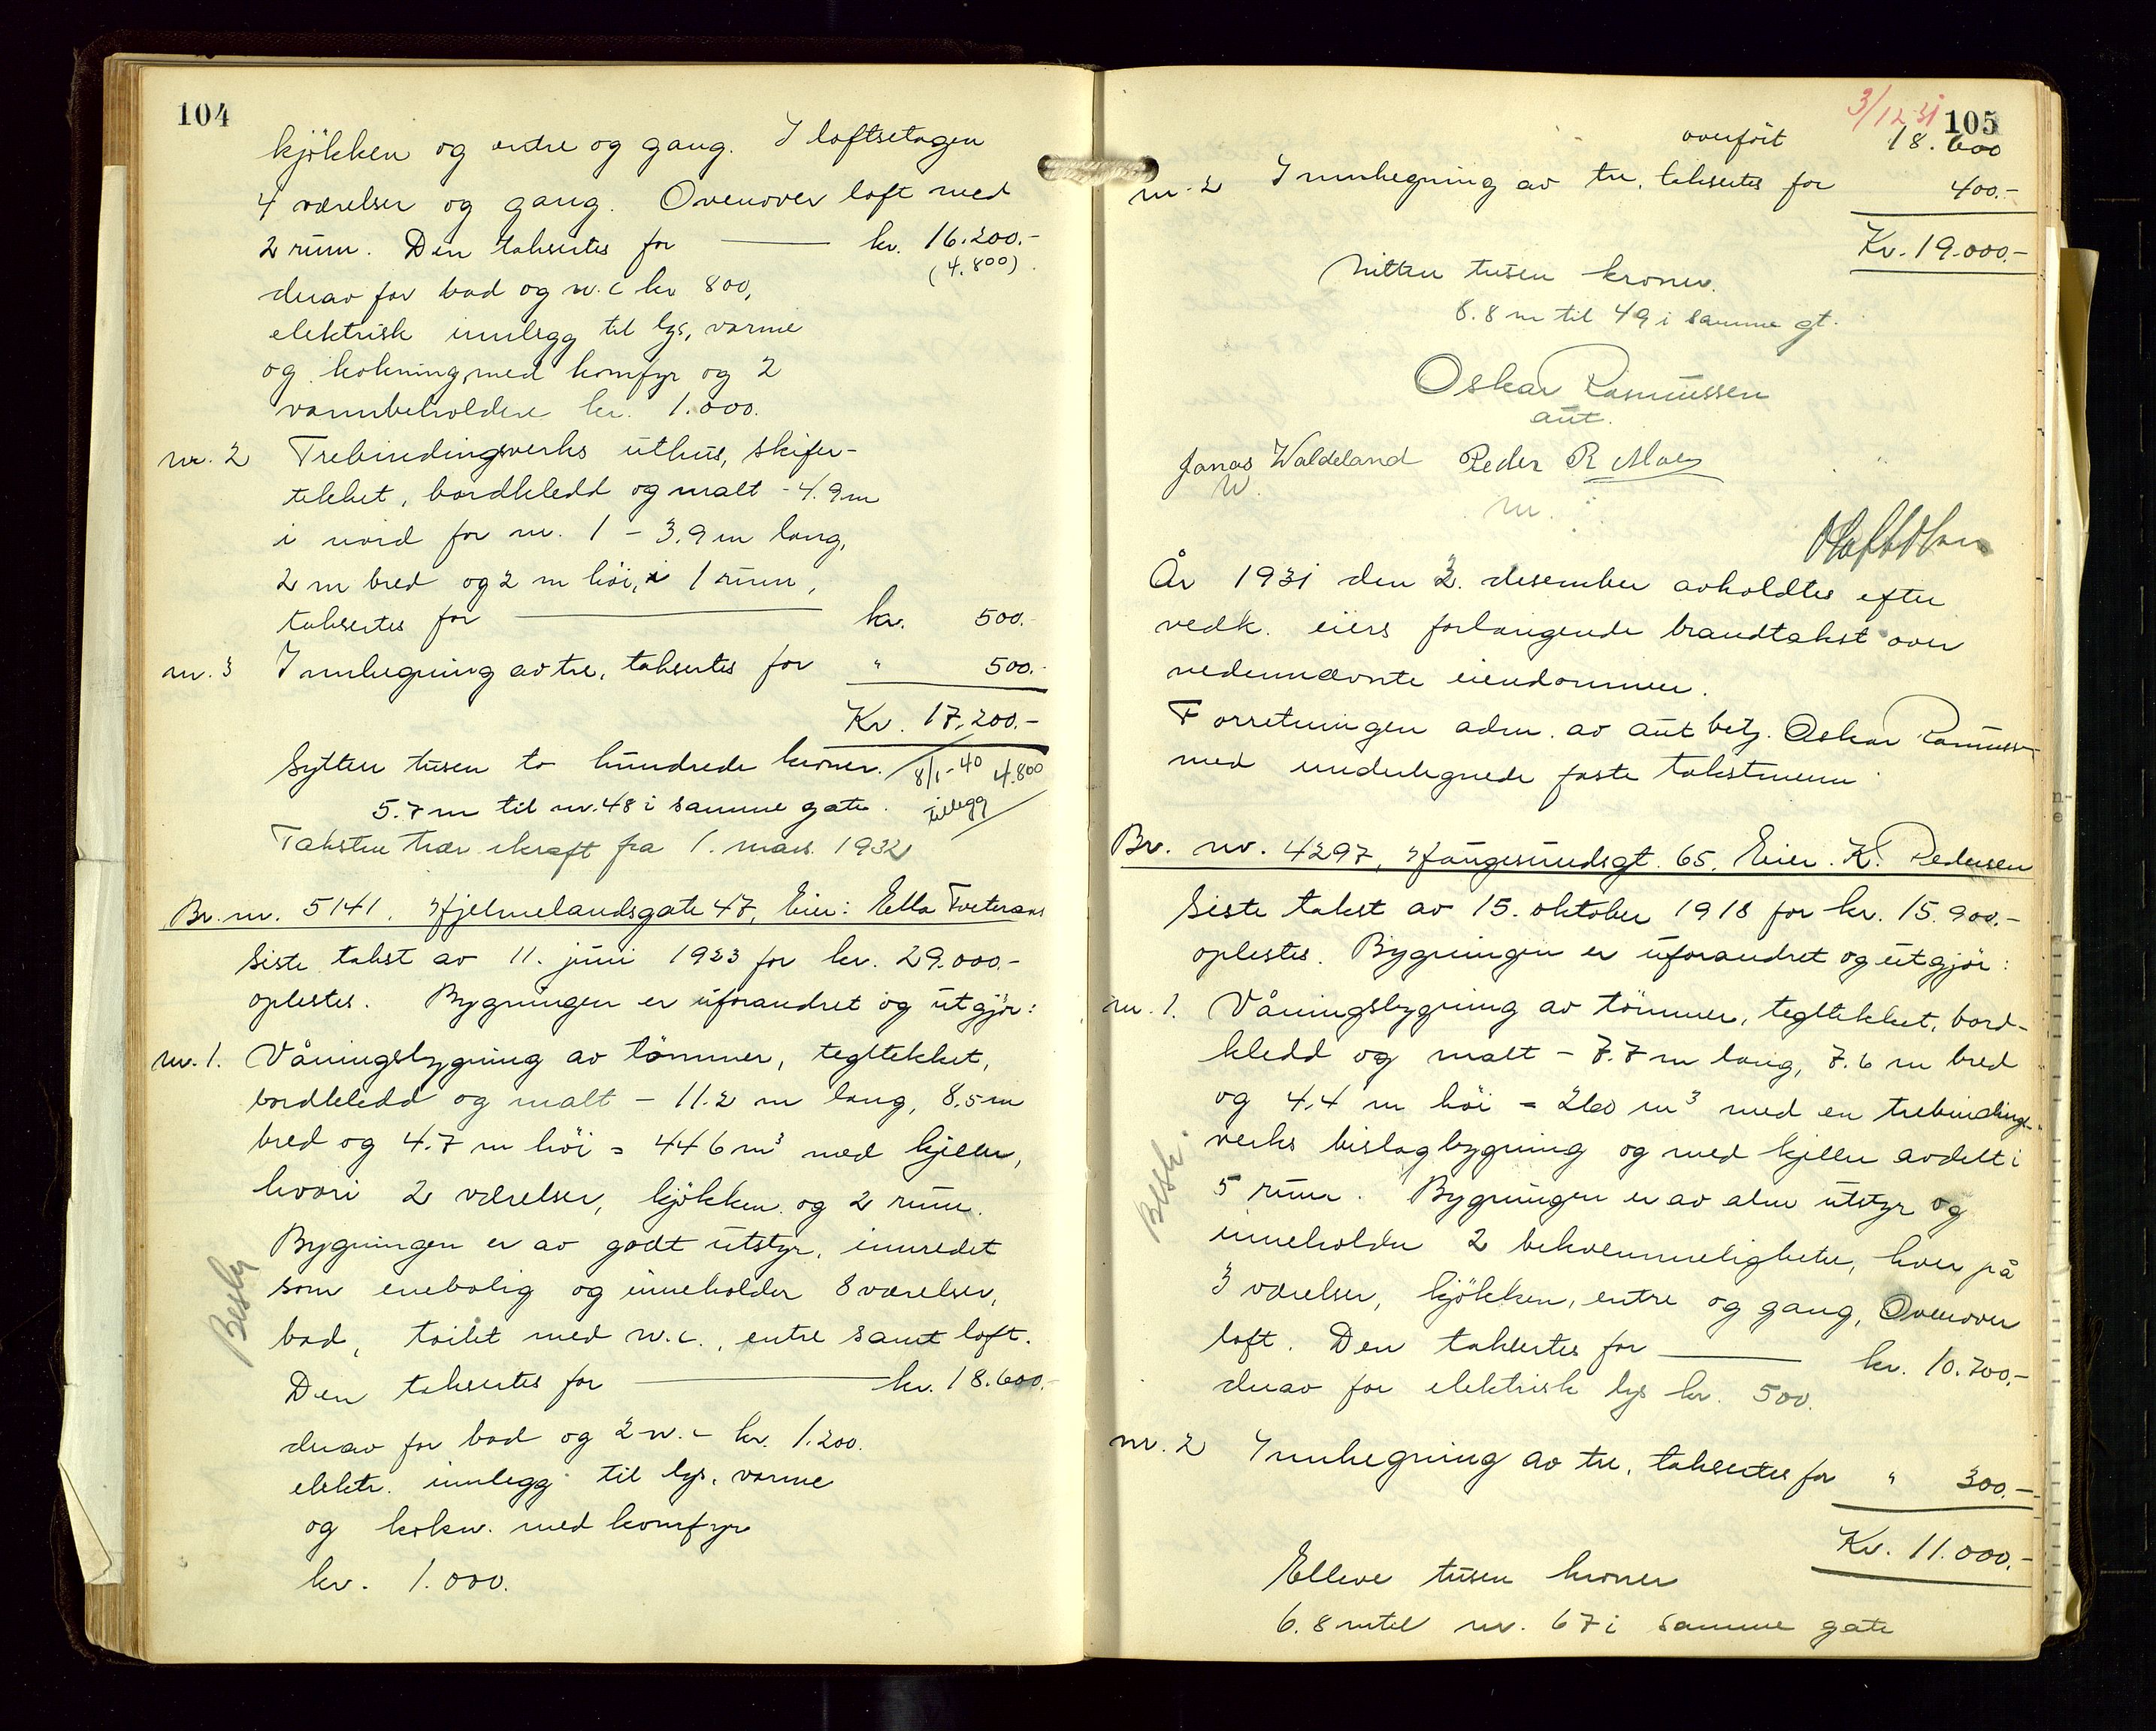 104
kjökken og entre og gang. I loftsetagen
4 værelser og gang. Ovenover loft med
2 rum. Den taksertes for kr. 16.200.-
(4.800)
derav for bad og w.c kr 800,
elektrisk innlegg til lys, varme
og kokning med komfyr og 2
varmbeholdere kr. 1.000.
nr. 2 Trebindingsverks uthus, skifer-
tekket, bordkledd og malt - 4.9 m
i nord for nr. 1 - 3.9 m lang,
2 m bred og 2 m höi, i 1 rum,
taksertes for kr. 500.-
nr. 3 Innhegning av tre, taksertes for " 500.-
Kr. 17.200.-
Sytten tusen to hundrede kroner. 8/1-40 4.800
5.7 m til nr. 48 i samme gate. tillegg
Taksten trær ikraft fra 1. mars 1932
Br. nr. 5141. Hjelmelandsgate 47, Eier: Ella Tveteraas
Siste takst av 11. juni 1923 for kr. 29.000.-
oplestes. Bygningen er uforandret og utgjör:
nr. 1. Våningsbygning av tömmer, tegltekket,
bordkledd og malt - 11.2 m lang, 8.5 m
bred og 4.7 m höi = 446 m³ med kjeller,
hvori 2 værelser, kjökken og 2 rum.
Bygningen er av godt utstyr, innredet
som enebolig og inneholder 8 værelser,
bad, toilet med w.c., entre samt loft.
Den taksertes for kr. 18.600.-
derav for bad og 2 w.c kr. 1.200.
elektr. innlegg til lys, varme
og kokn. med komfyr
kr. 1.000.
3/12 31
105
overfört 18.600
nr. 2 Innhegning av tre, taksertes for 400.-
Kr. 19.000.-
Nitten tusen kroner.
8.8 m til 49 i samme gt.
Oskar Rasmussen
aut.
Jonas Waldeland Peder R Moe
År 1931 den 3. desember avholdtes efter
vedk. eiers forlangende brandtakst over
nedennævnte eiendommer.
Forretningen adm. av aut betj. Oskar Rasmussen
med undertegnede faste takstmenn.
Br. nr. 4297, Haugesundsgt. 65, Eier. K. Pedersen
Siste takst av 15. oktober 1918 for kr. 15.900.-
oplestes. Bygningen er uforandret og utgjör:
nr. 1. Våningsbygning av tömmer, tegltekket, bord-
kledd og malt - 7.7 m lang, 7.6 m bred
og 4.4 m höi = 260 m³ med en trebindings-
verks bislagbygning og med kjeller avdelt i
5 rum. Bygningen er av alm utstyr og
inneholder 2 bekvemmeligheter, hver på
3 værelser, kjökken, entre og gang, Ovenover
loft. Den taksertes for kr. 10.700.-
derav for elektrisk lys kr. 500.
nr. 2 Innhegning av tre, taksertes for " 300.-
Kr. 11.000.-
Elleve tusen kroner
6.8 m til nr. 67 i samme gate